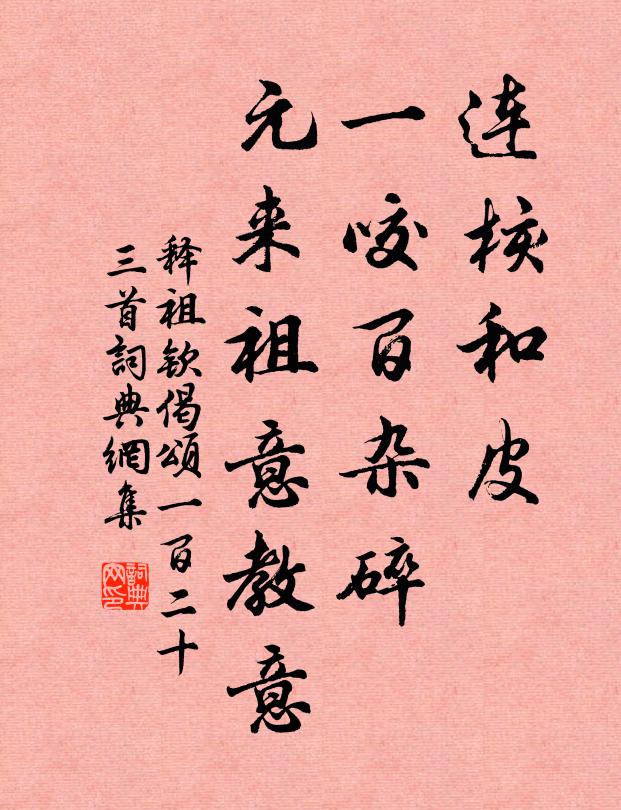 连核和皮
一咬百杂碎
元来祖意教意
释祖钦偈頌一百二十
三首詞典網集
詞典网印